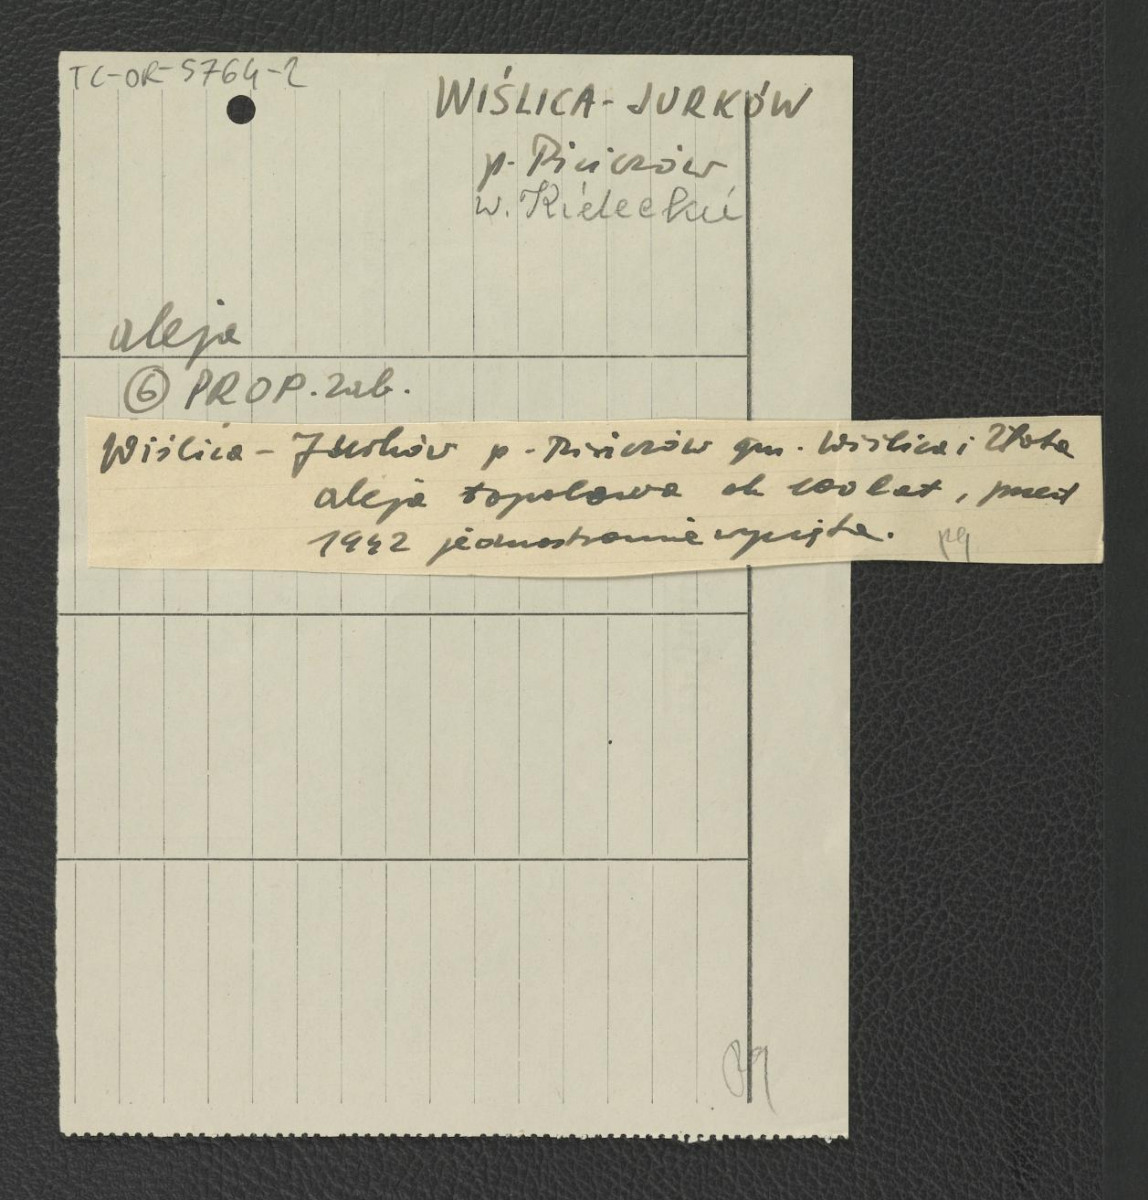 TC-OR-5764-2
WIŚLICA - JURKÓW
p. Pińczów
w. Kieleckie
aleja
⑥ PROP. zab.
Wiślica - Jurków p. Pińczów gm. Wiślica i Złota
aleja topolowa ok 100 lat, przed
1942 jednostronnie wycięta. pg
pg